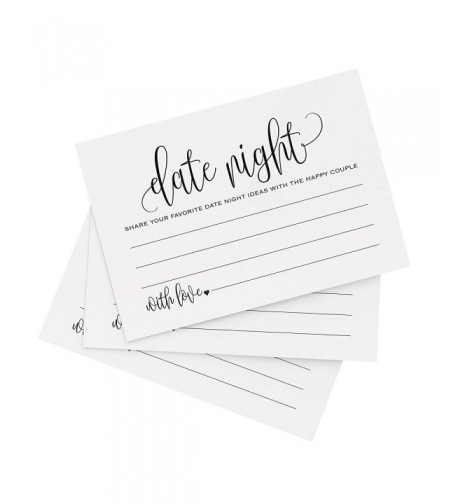 date night
SHARE YOUR FAVORITE DATE NIGHT IDEAS WITH THE HAPPY COUPLE
with love
wi
wi